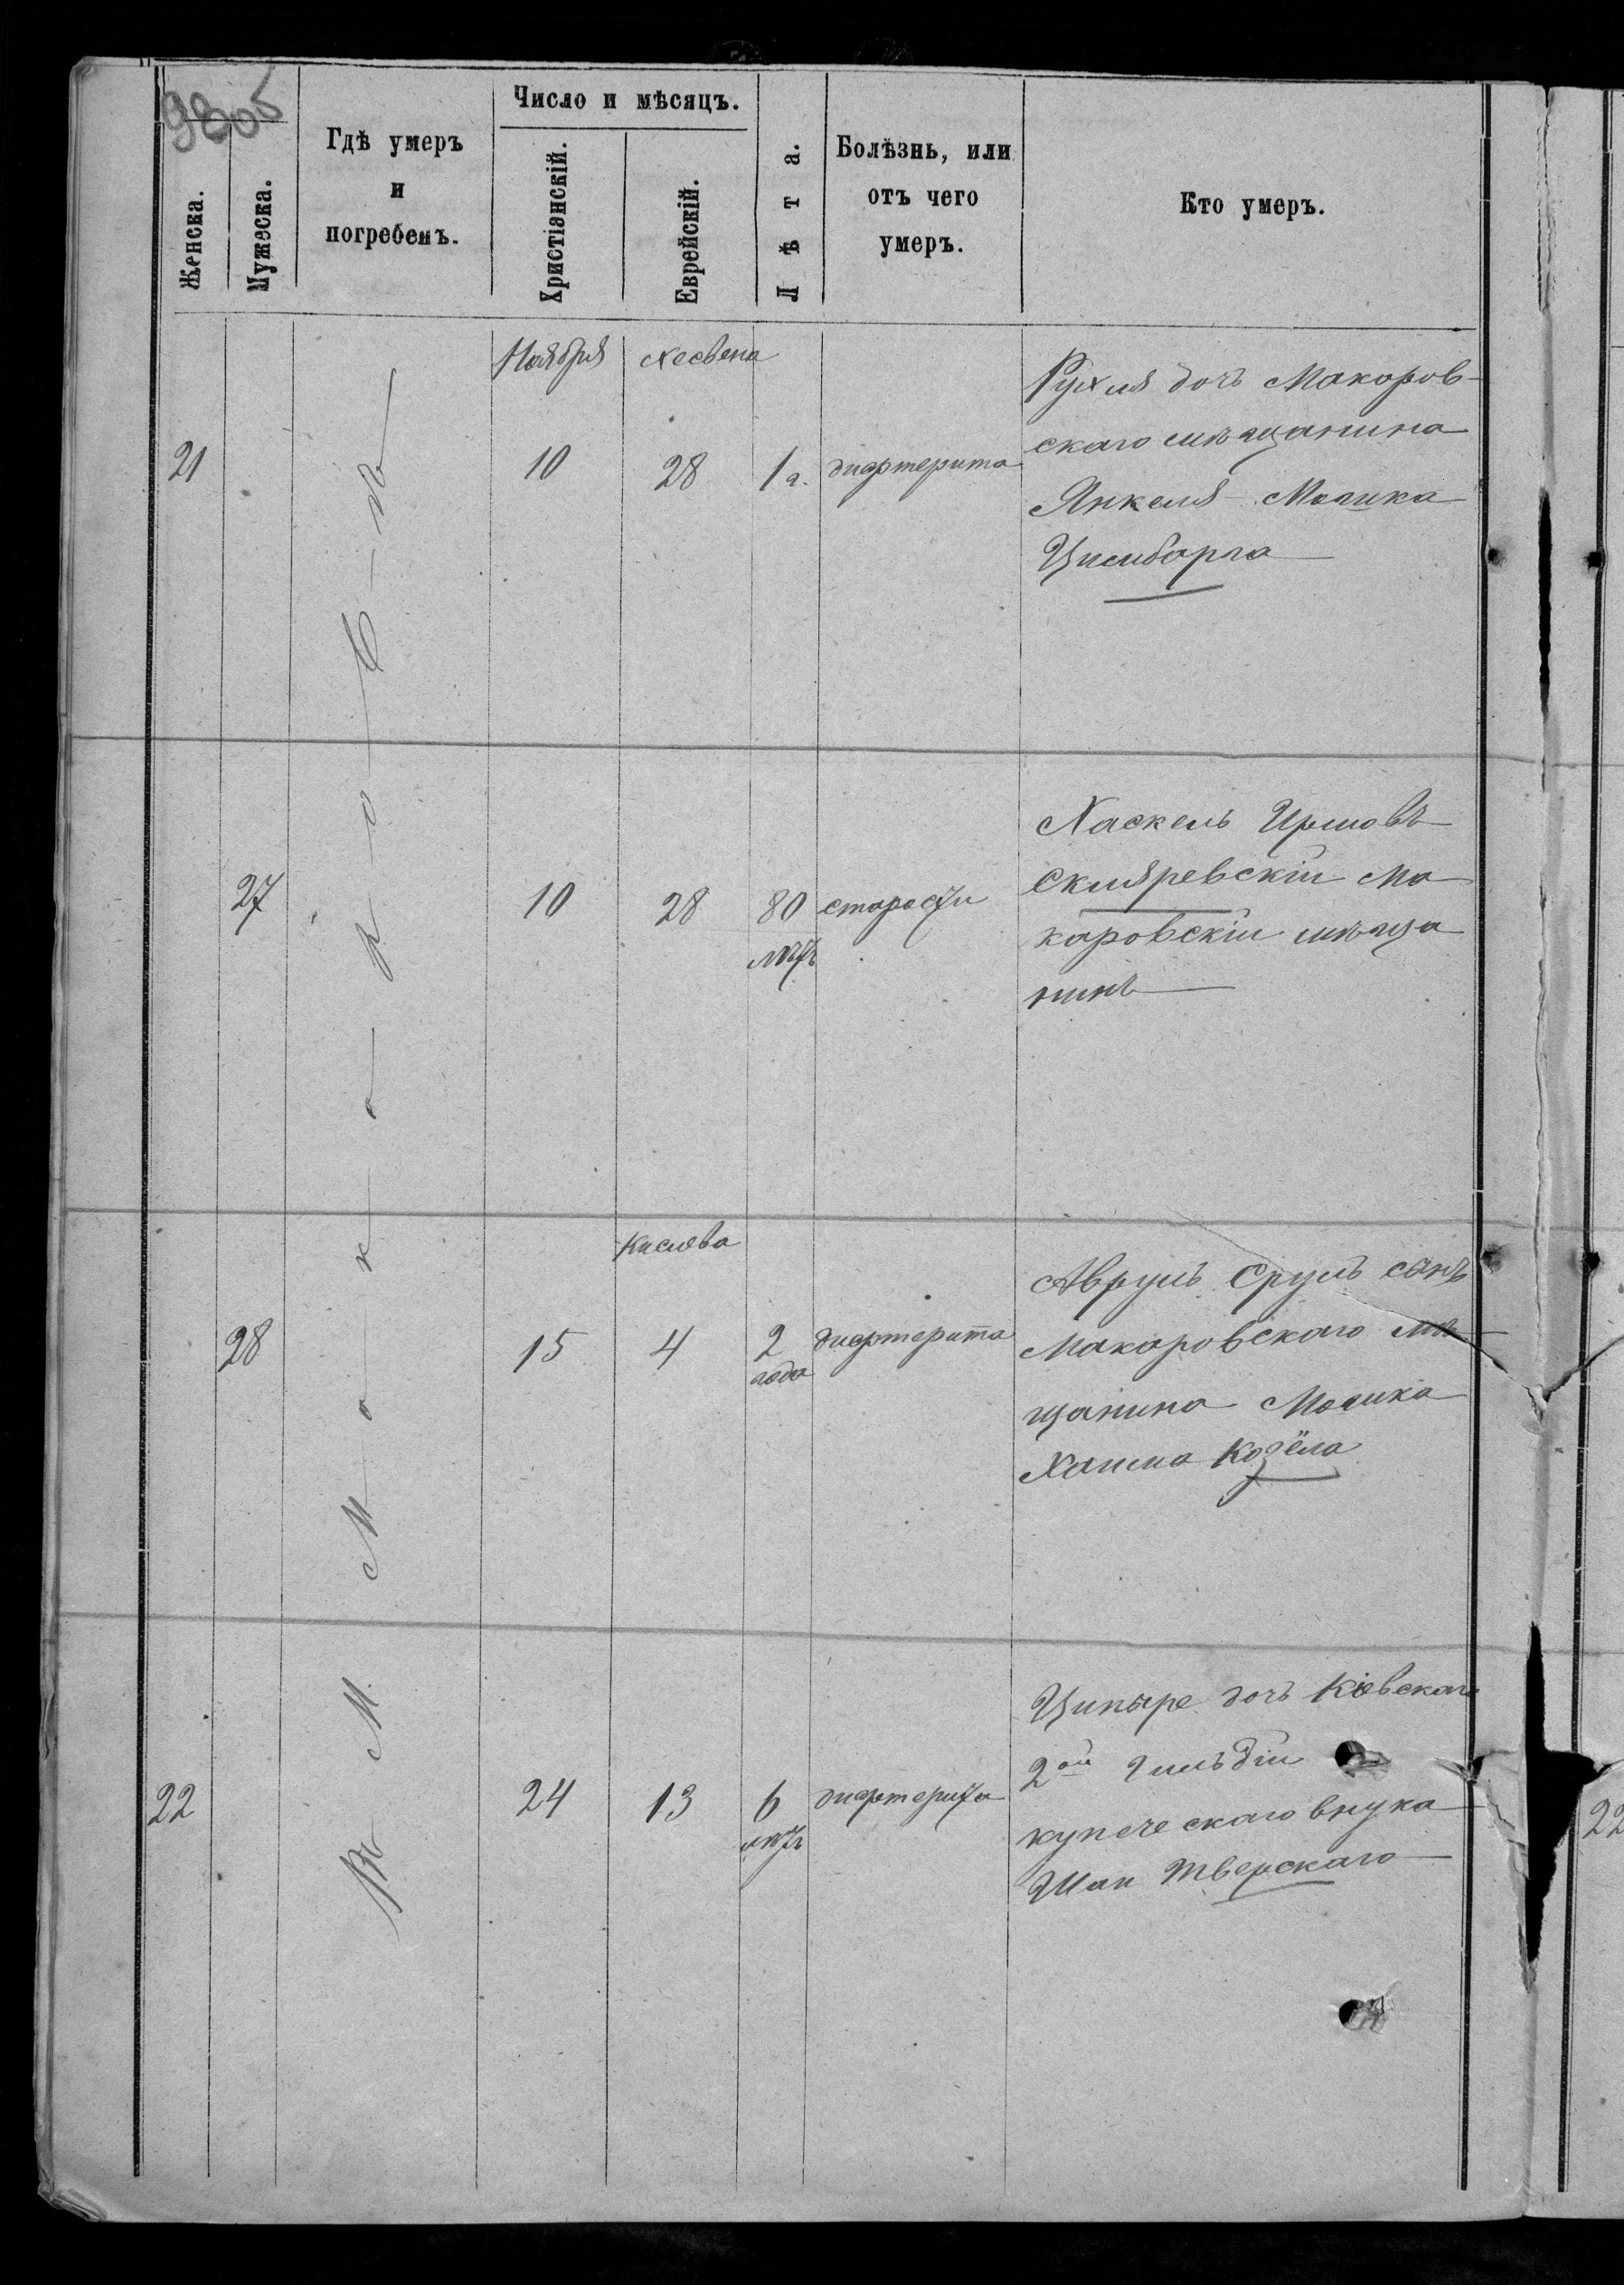 98об
Женска.
Мужеска.
Гдѣ умеръ
и
погребенъ.
Число и мѣсяцъ.
Христіанскій.
Еврейскій.
Лѣта.
Болѣзнь, или
отъ чего
умеръ.
Кто умеръ.
В М. Макаровѣ
Ноября
Хесвена
21
10
28
1 г.
дифтерита
Рухля дочь Макаров-
скаго мѣщанина
Янкеля Мошка
Цимбарга
27
10
28
80
лѣтъ
старости
Хаскель Иршовъ
Скляревскій Ма
каровскій мѣща
нинъ
Кислева
28
15
4
2
года
дифтерита
Аврумъ Срулъ сынъ
Макаровскаго мѣ
щанина Мошка
Хаима Козёла
22
24
13
6
лѣтъ
дифтерита
Ципыре дочь Кіевскаго
2ой Гильдіи
купеческаго внука
Тверскаго
22